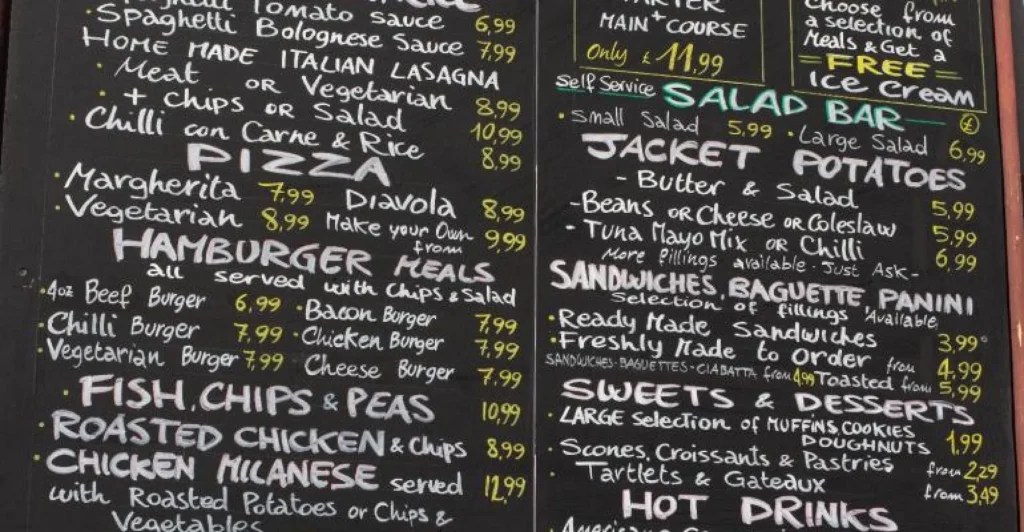 Tomato Sauce 6,99
· Spaghetti Bolognese Sauce 7,99
HOME MADE ITALIAN LASAGNA
· Meat or Vegetarian 8,99
+ Chips or Salad 10,99
· Chilli con Carne & Rice 8,99
PIZZA
· Margherita 7,99 Diavola 8,99
· Vegetarian 8,99 Make your Own from 9,99
HAMBURGER MEALS
all served with Chips & Salad
· 4oz Beef Burger 6,99 · Bacon Burger 7,99
· Chilli Burger 7,99 · Chicken Burger 7,99
· Vegetarian Burger 7,99 Cheese Burger 7,99
· FISH, CHIPS & PEAS 10,99
· ROASTED CHICKEN & Chips 8,99
· CHICKEN MILANESE served 12,99
with Roasted Potatoes or Chips &
Vegetables
MAIN + COURSE
Only £ 11,99
Choose from
a selection of
Meals & Get a
= FREE =
Ice Cream
Self Service SALAD BAR £
· Small Salad 5,99 · Large Salad 6,99
JACKET POTATOES
- Butter & Salad 5,99
- Beans or Cheese or Coleslaw 5,99
- Tuna Mayo Mix or Chilli 6,99
More fillings available · Just Ask -
SANDWICHES, BAGUETTE, PANINI
Selection of fillings Available
· Ready Made Sandwiches 3,99
· Freshly Made to Order from 4,99
SANDWICHES - BAGUETTES - CIABATTA from 4,99 Toasted from 5,99
SWEETS & DESSERTS
· LARGE Selection of MUFFINS, COOKIES
DOUGHNUTS 1,99
· Scones, Croissants & Pastries from 2,29
· Tartlets & Gateaux from 3,49
HOT DRINKS